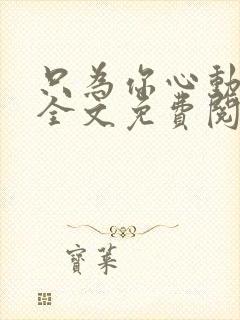 只為你心動
全文免費閱
寶葉